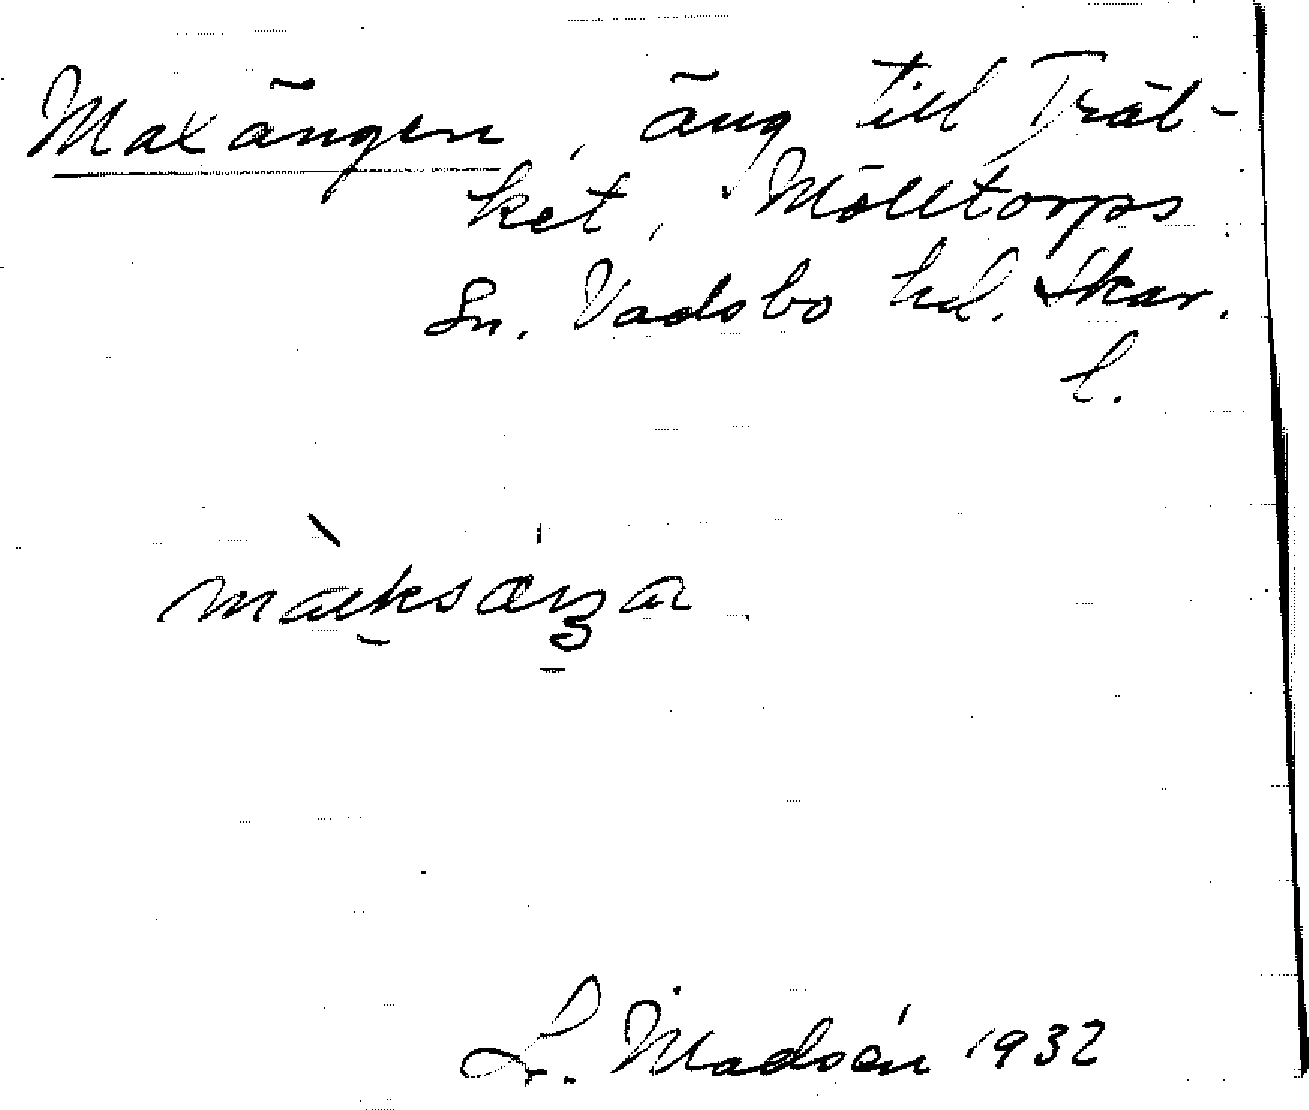 Maxängen, äng till Träl-
ket, Mölltorps
Sn. Vadsbo hd. Skar.
l.
L. Madsén 1932